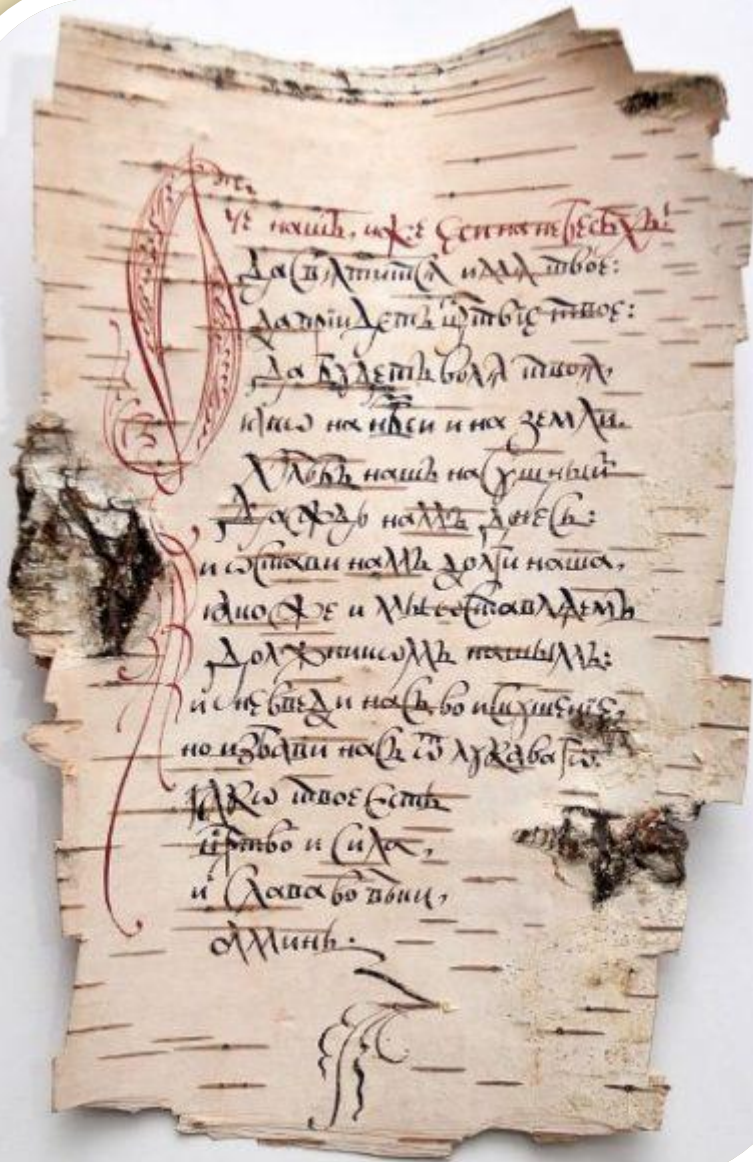 Отче нашъ, иже еси на небесѣхъ!
да свѧтитсѧ имѧ твое:
да прїидетъ цртвїе твое:
да будетъ волѧ твоѧ,
ꙗкѡ на нбси и на земли.
хлѣбъ нашъ насущный
даждь намъ днесь:
и ѡстави намъ долги наша,
ꙗкоже и мы ѡставлѧемъ
должникѡмъ нашымъ:
и не введи насъ во искушенїе,
но избави насъ ѿ лукавагѡ
ꙗкѡ твое есть
цртво и сила,
и слава во вѣки,
аминь.